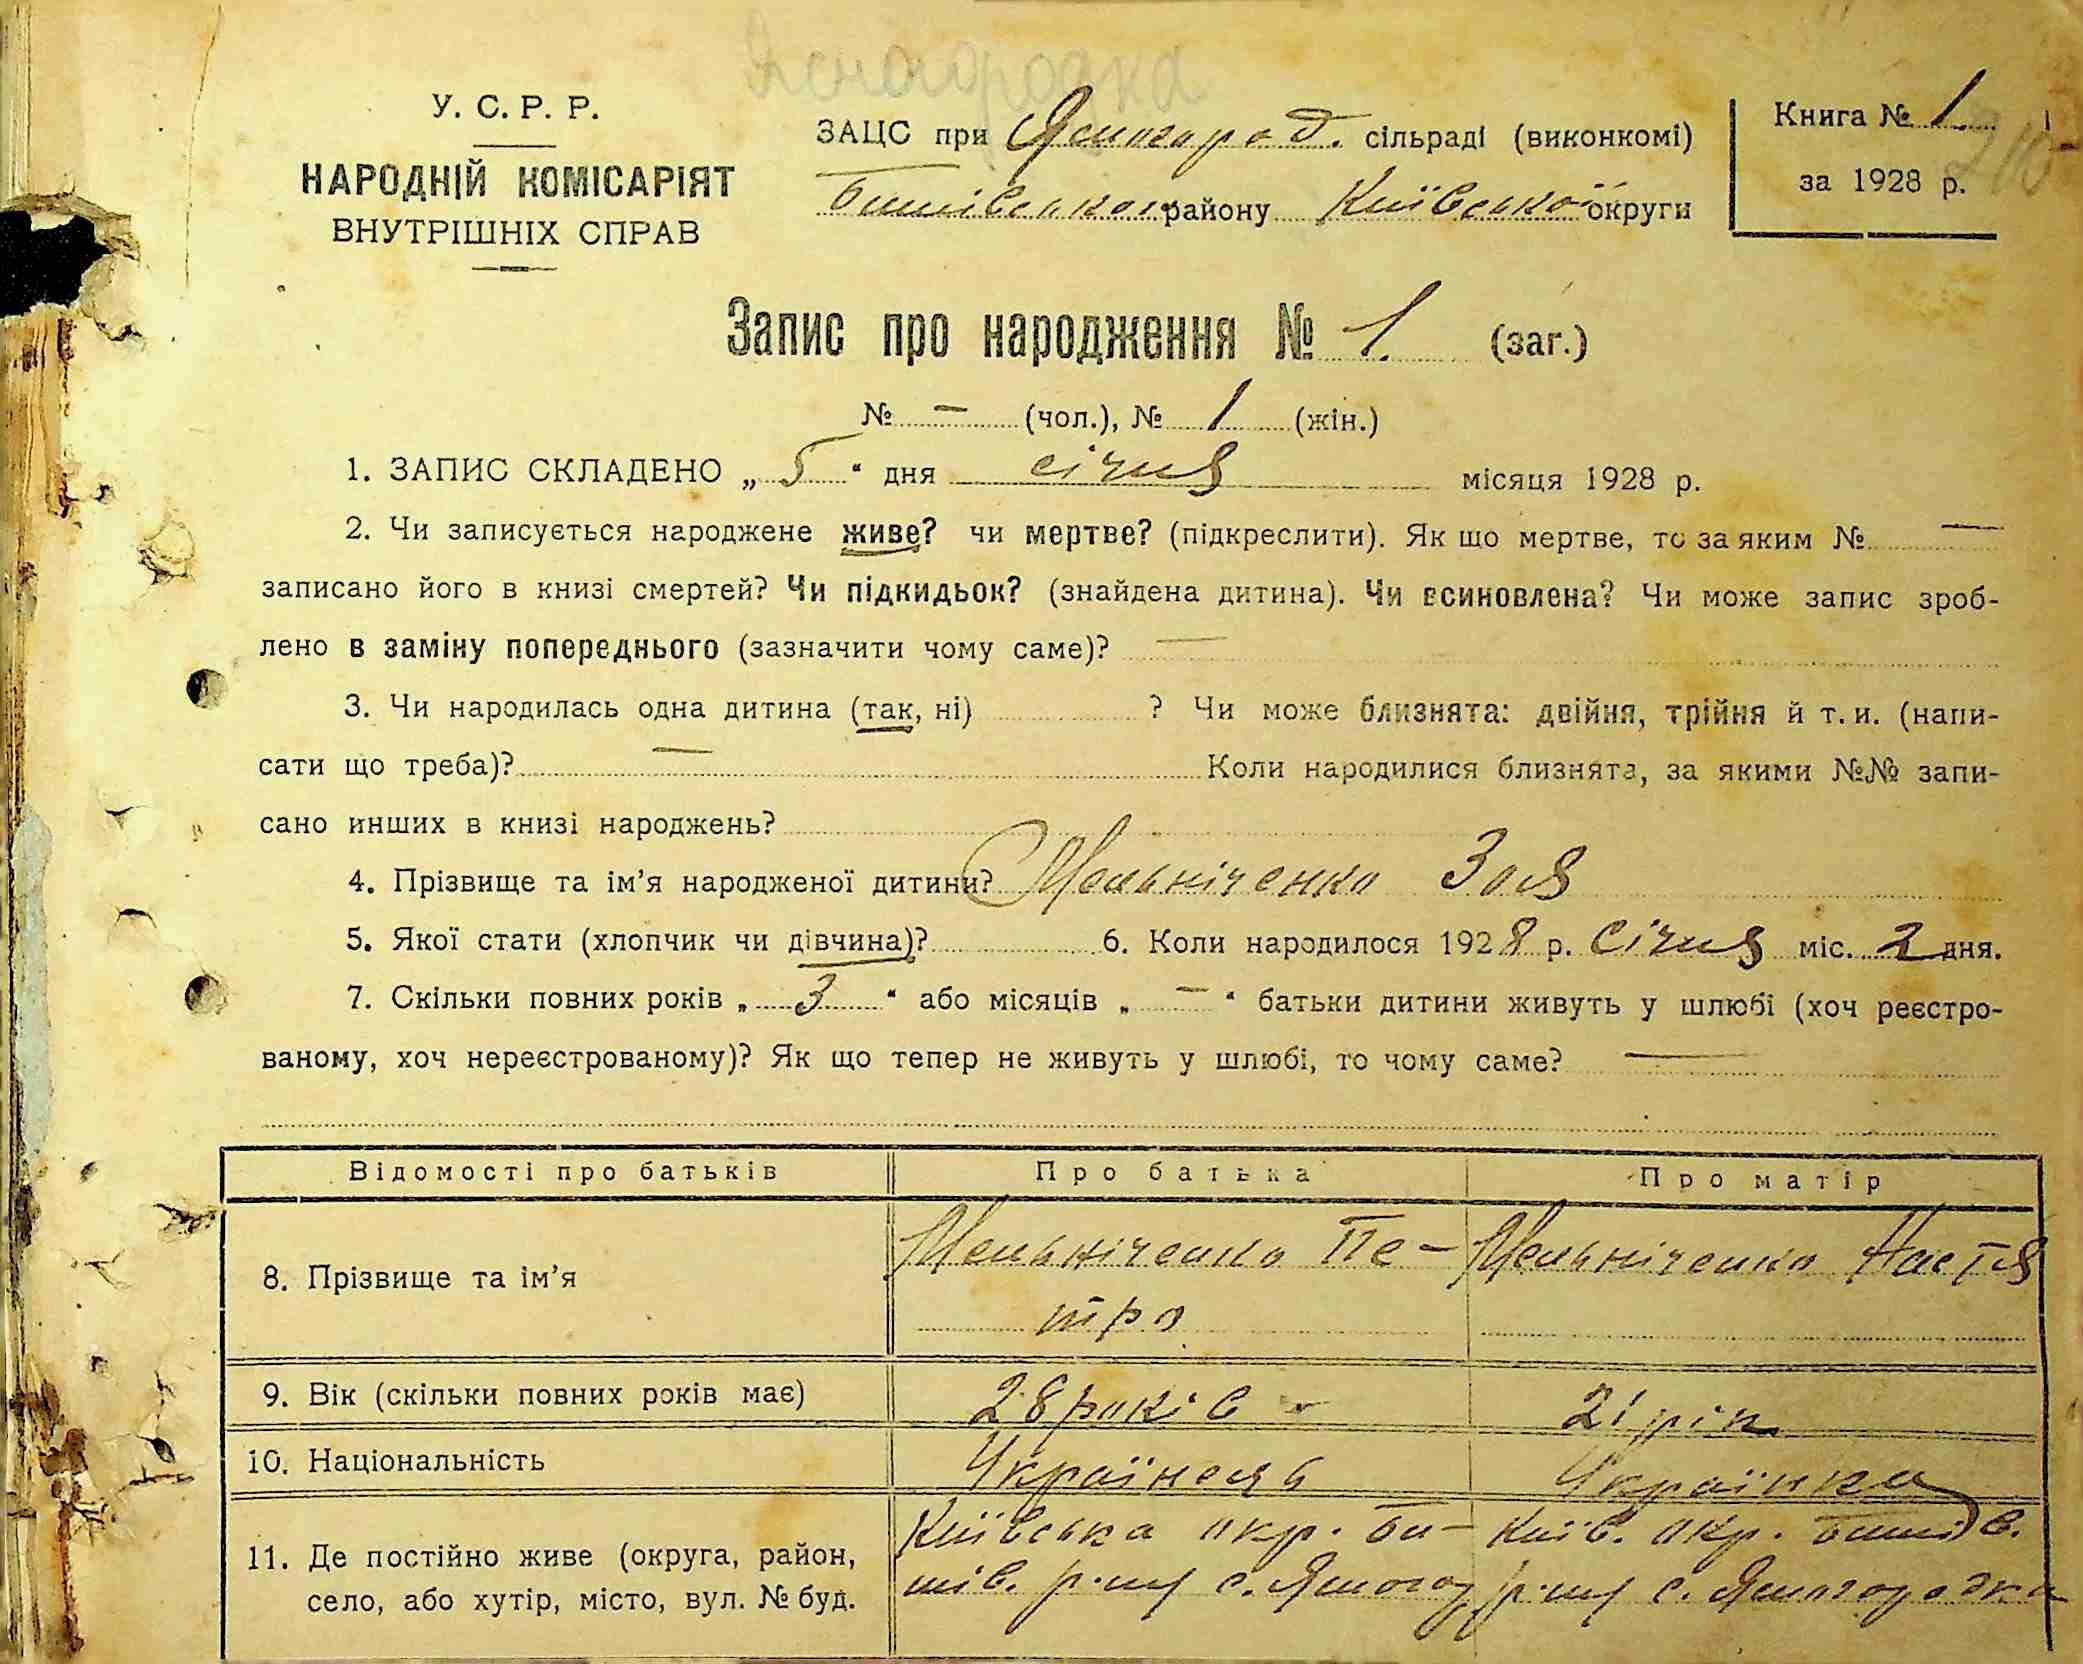 Ясногородка
У. С. Р. Р.
НАРОДНІЙ КОМІСАРІЯТ
ВНУТРІШНІХ СПРАВ
ЗАЦС при Ясногород. сільраді (виконкомі)
Бишівського району Київської округи
Книга № 1.
за 1928 р.
Запис про народження № 1. (заг.)
№ — (чол.), № 1 (жін.)
1. ЗАПИС СКЛАДЕНО „ 5 “ дня січня місяця 1928 р.
2. Чи записується народжене живе? чи мертве? (підкреслити). Як що мертве, то за яким № —
записано його в книзі смертей? Чи підкидьок? (знайдена дитина). Чи всиновлена? Чи може запис зроб-
лено в заміну попереднього (зазначити чому саме)? —
3. Чи народилась одна дитина (так, ні) ? Чи може близнята: двійня, трійня й т. и. (напи-
сати що треба)? — Коли народилися близнята, за якими №№ запи-
сано инших в книзі народжень?
4. Прізвище та ім’я народженої дитини? Мельніченко Зоя
5. Якої стати (хлопчик чи дівчина)? 6. Коли народилося 1928 р. Січня міс. 2 дня.
7. Скільки повних років „ 3 “ або місяців „ — “ батьки дитини живуть у шлюбі (хоч реєстро-
ваному, хоч нереєстрованому)? Як що тепер не живуть у шлюбі, то чому саме? —
Відомості про батьків Про батька Про матір
8. Прізвище та ім’я
Мельніченко Пе-
тро
Мельніченко Настя
9. Вік (скільки повних років має) 28 років 21 рік
10. Національність Українець Українка
11. Де постійно живе (округа, район,
село, або хутір, місто, вул. № буд.
Київська окр. Би-
шів. р-ну с. Ясногор
Київ. окр. Бишів.
р-ну с. Ясногородка